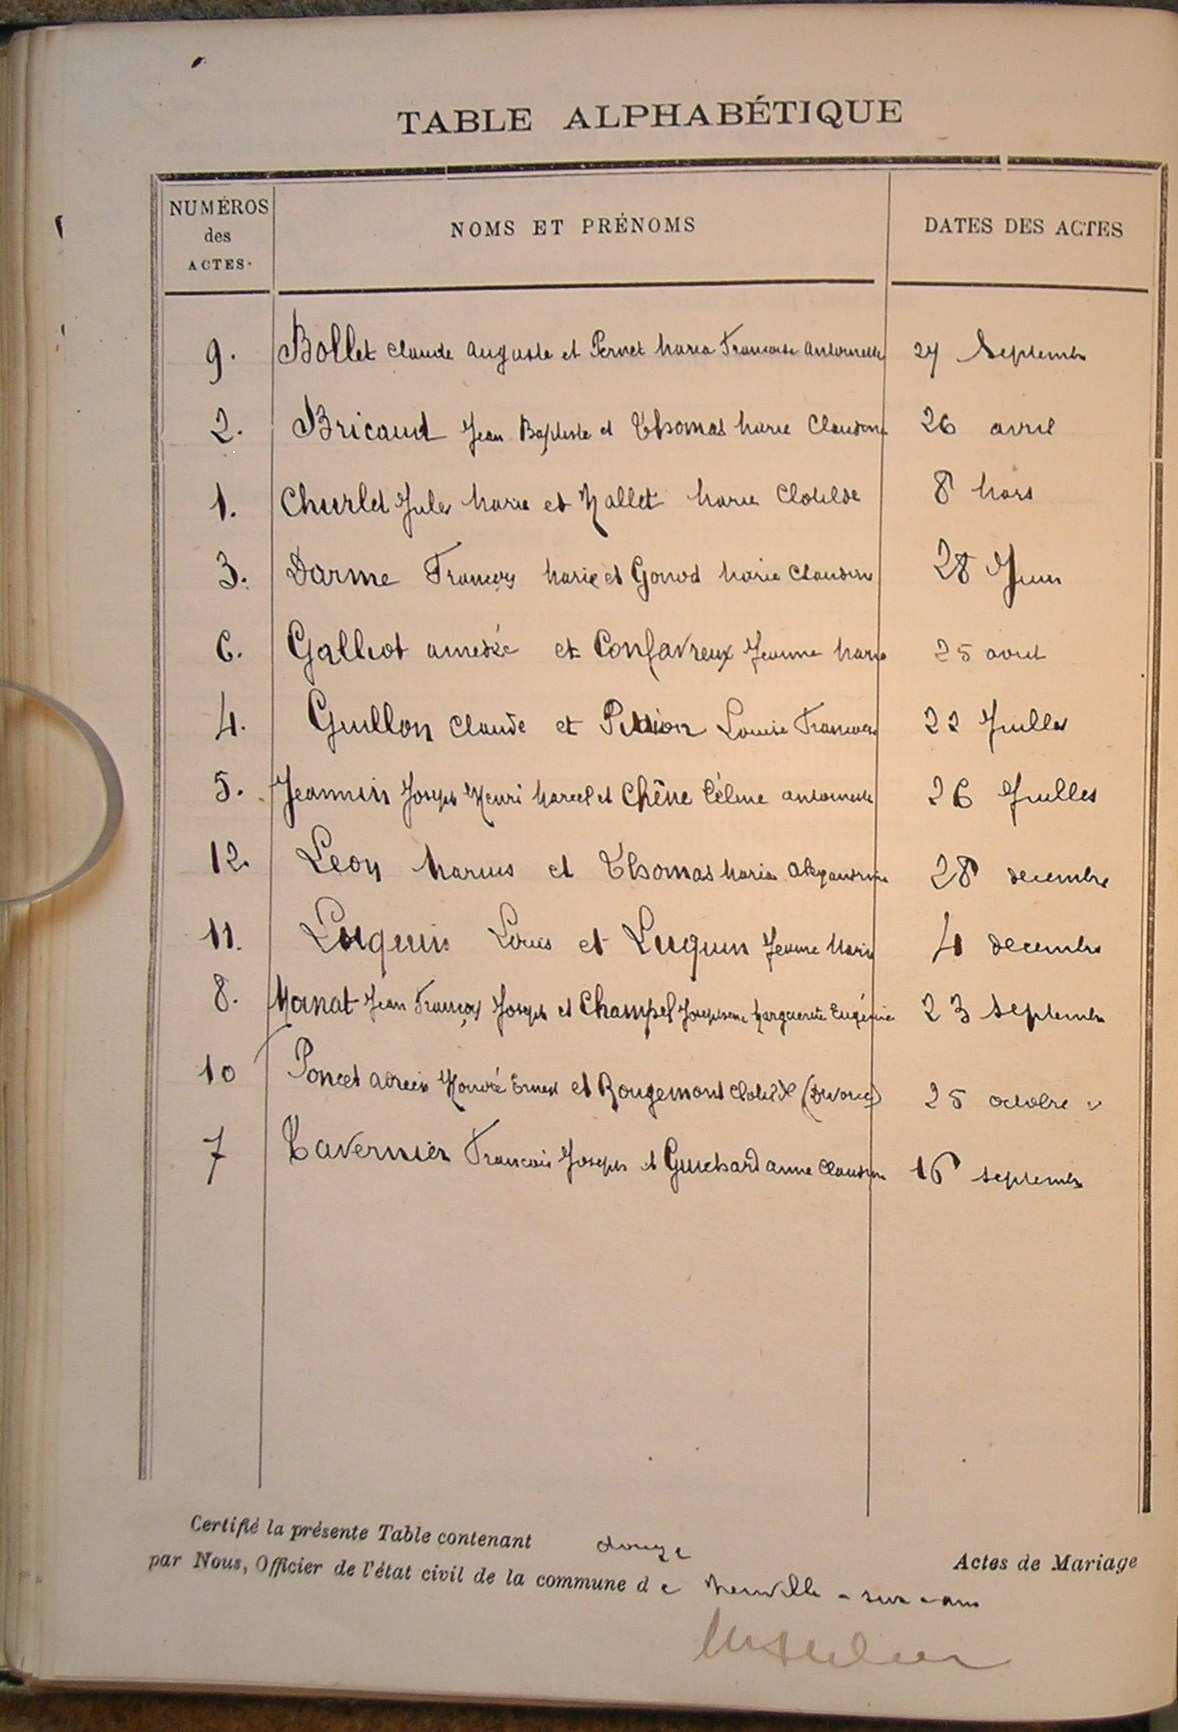 TABLE ALPHABÉTIQUE
NUMÉROS des ACTES. NOMS ET PRÉNOMS DATES DES ACTES
9. Bollet Claude Auguste et Pernet Maria Francoise Antoinette 27 Septembre
2. Bricaud Jean Baptiste et Thomas Marie Claudine 26 avril
1. Churlet Jules Marie et Mallet Marie Clotilde 8 Mars
3. Darme François Marie et Gonod Marie Claudine 28 Juin
6. Galliot amedée et Confavreux Jeanne Marie 25 aout
4. Guillon Claude et Pittion Louise Francoise 22 Juillet
5. Jeannin Joseph Henri Marcel et Chêne Céline antoinette 26 Juillet
12. Leon Marius et Thomas Maria Alexandrine 28 decembre
11. Luquin Louis et Luquin Jeanne Marie 4 decembre
8. Monat Jean François Joseph et Champel Josephine Marguerite Eugénie 23 septembre
10 Poncet adrien Honoré Ernest et Rougemont Clotilde (Divorce) 25 octobre
7 Tavernier Francois Joseph et Guichard anne Claudine 16 septembre
Certifié la présente Table contenant douze Actes de Mariage
par Nous, Officier de l'état civil de la commune de Neuville-sur-ain